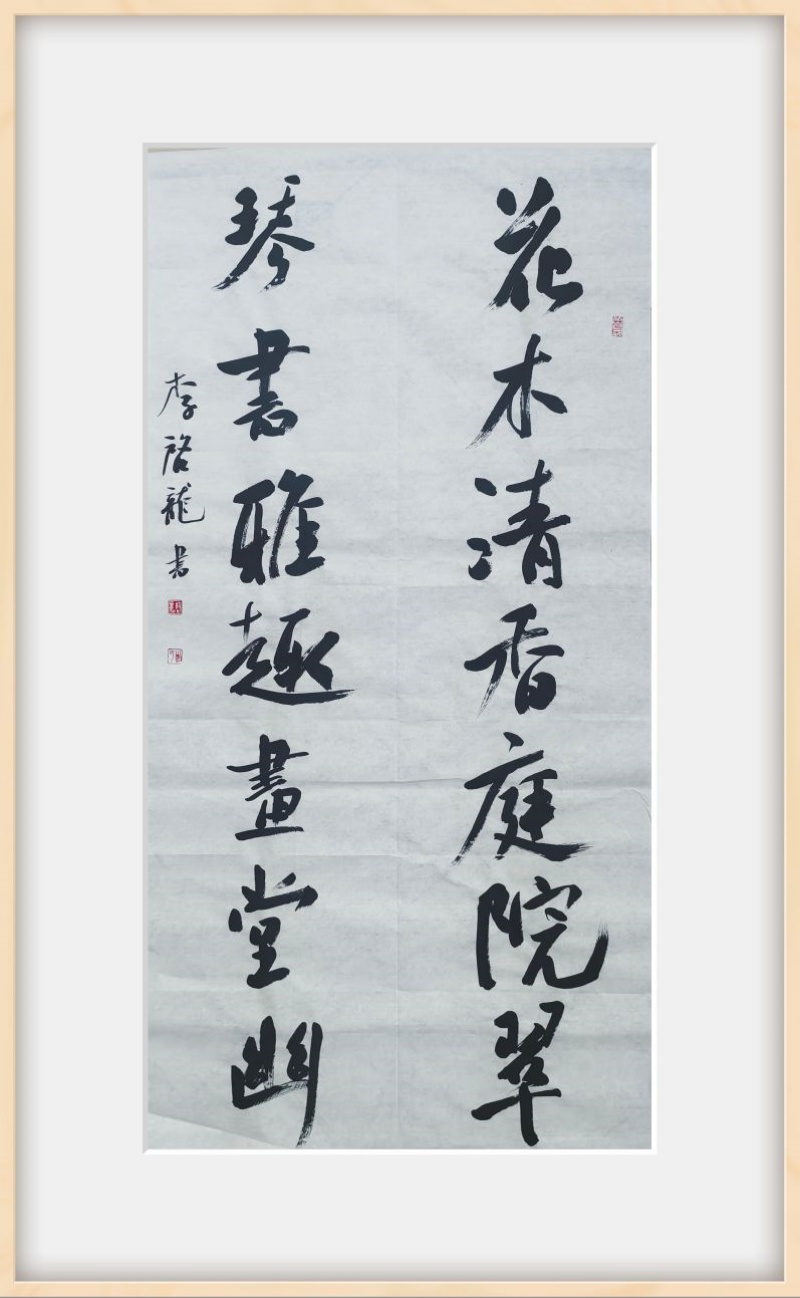 花木清香庭院翠
琴書雅趣畫堂幽
李啓龍書